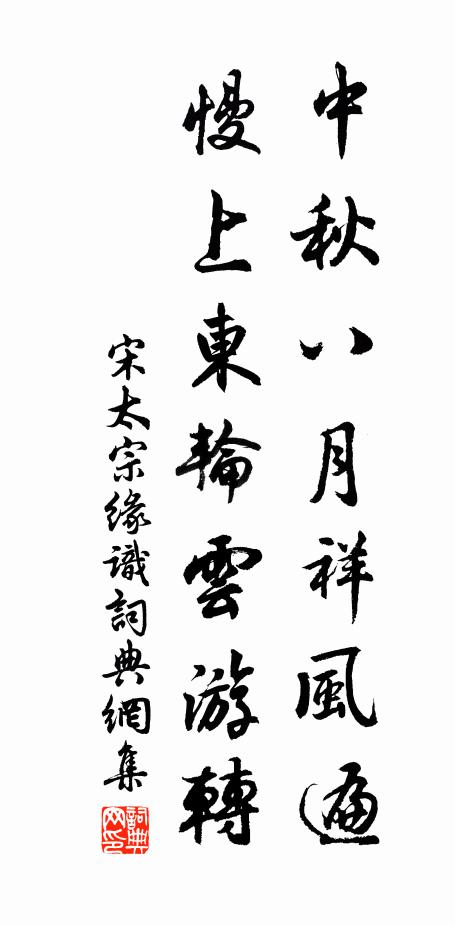 中秋八月祥風遍
慢上東輪雲游轉
宋太宗緣識詞典網集
詞典网印